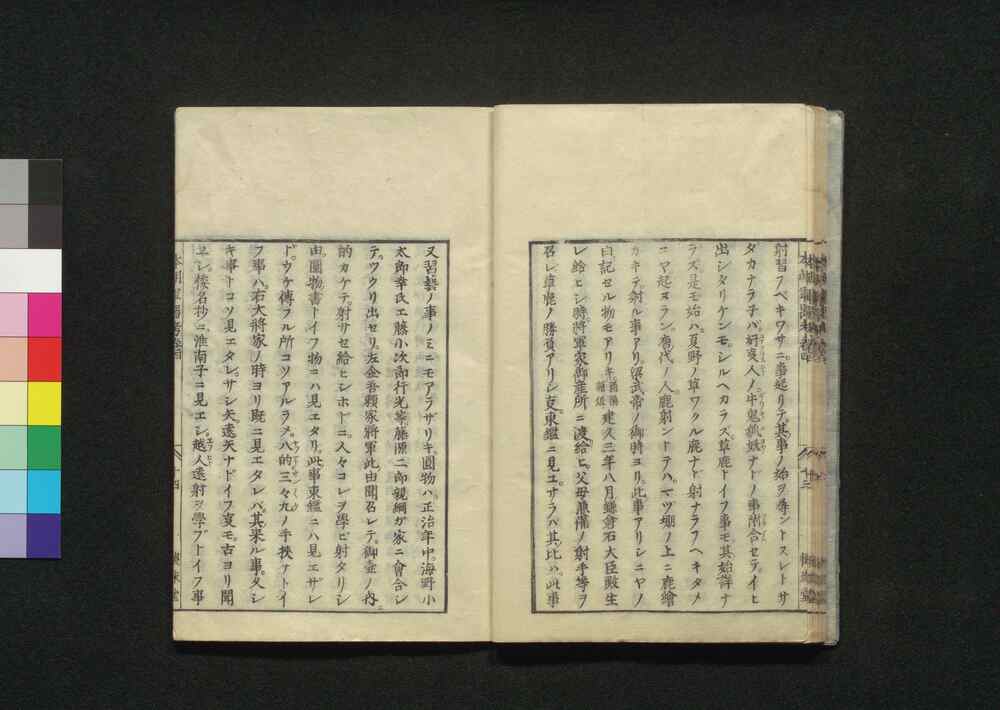 射習フベキワサニ事起リテ其事ノ始ヲ尋ントスレトサ
タカナラチバ好夏人ノ牛鬼狐妖ナドノ事附合セライヒ
出シタリケンモシルヘカラズ草鹿トイフ事モ其始詳ナ
ラズ是モ始ハ夏野ノ草ワクル鹿ナド射ナラフヘキタメ
ニマ起ヌラン唐代ノ人鹿射ントテハマツ堋ノ上ニ鹿繪
カキテ射ル事アリ梁武帝ノ御時ヨリ此事アリシニヤノ
由記セル物モアリキ建久三年八月鎌倉右大臣殿生
レ給ヒシ時將軍家御産所ニ渡給ヒ父母兼備ノ射手等ヲ
召レ草鹿ノ勝負アリシ支東鑑ニ見エサラバ其比ハ此事
又習藝ノ事ノミニモアラザリキ圓物ハ正治年中海野小
太郎幸氏工藤小次郎行光等藤源二郎親綱ガ家ニ會合シ
テツクリ出セリ左金吾頼家將軍此由聞召レテ御壷ノ内ニ
的カケテ射サセ給ヒシホトニ人々コレヲ學ビ射タリシ
由圓物書トイフ物ニハ見エタリ此事東鑑ニハ見エザレ
ドウケ傳フル所コソアルラメ八的三々九ノ手挾ナトイ
フ事ハ右大將家ノ時ヨリ既ニ見エタレバ其來ル事久シ
キ事トコソ見エタレサシ矢遠矢ナドイフ支モ古ヨリ聞
エシ倭名抄ニ淮南子ニ見エシ越人遠射ヲ學ブトイフ事
十四